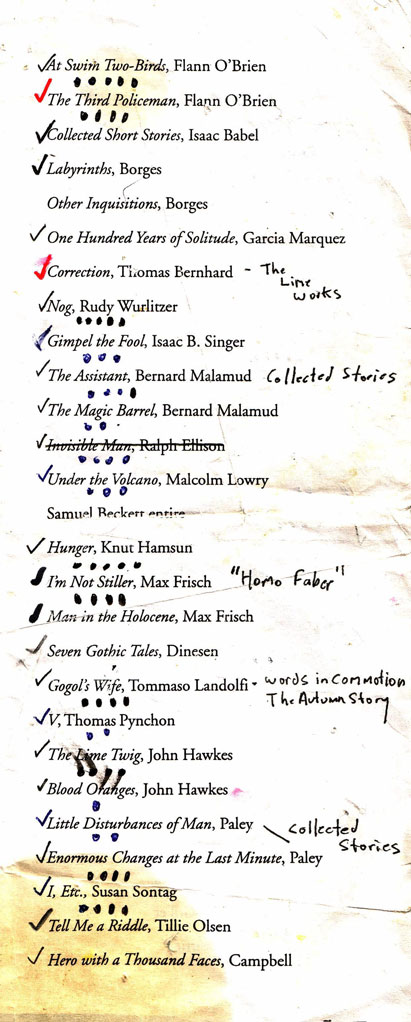 At Swim Two-Birds, Flann O'Brien
The Third Policeman, Flann O'Brien
Collected Short Stories, Isaac Babel
Labyrinths, Borges
Other Inquisitions, Borges
One Hundred Years of Solitude, Garcia Marquez
Correction, Thomas Bernhard - The
Lime
Works
Nog, Rudy Wurlitzer
Gimpel the Fool, Isaac B. Singer
The Assistant, Bernard Malamud Collected Stories
The Magic Barrel, Bernard Malamud
Invisible Man, Ralph Ellison
Under the Volcano, Malcolm Lowry
Samuel Beckett entire
Hunger, Knut Hamsun
I'm Not Stiller, Max Frisch "Homo Faber"
Man in the Holocene, Max Frisch
Seven Gothic Tales, Dinesen
Gogol's Wife, Tommaso Landolfi - words in commotion
The Autumn Story
V, Thomas Pynchon
The Lime Twig, John Hawkes
Blood Oranges, John Hawkes
Little Disturbances of Man, Paley
Collected
Stories
Enormous Changes at the Last Minute, Paley
I, Etc., Susan Sontag
Tell Me a Riddle, Tillie Olsen
Hero with a Thousand Faces, Campbell